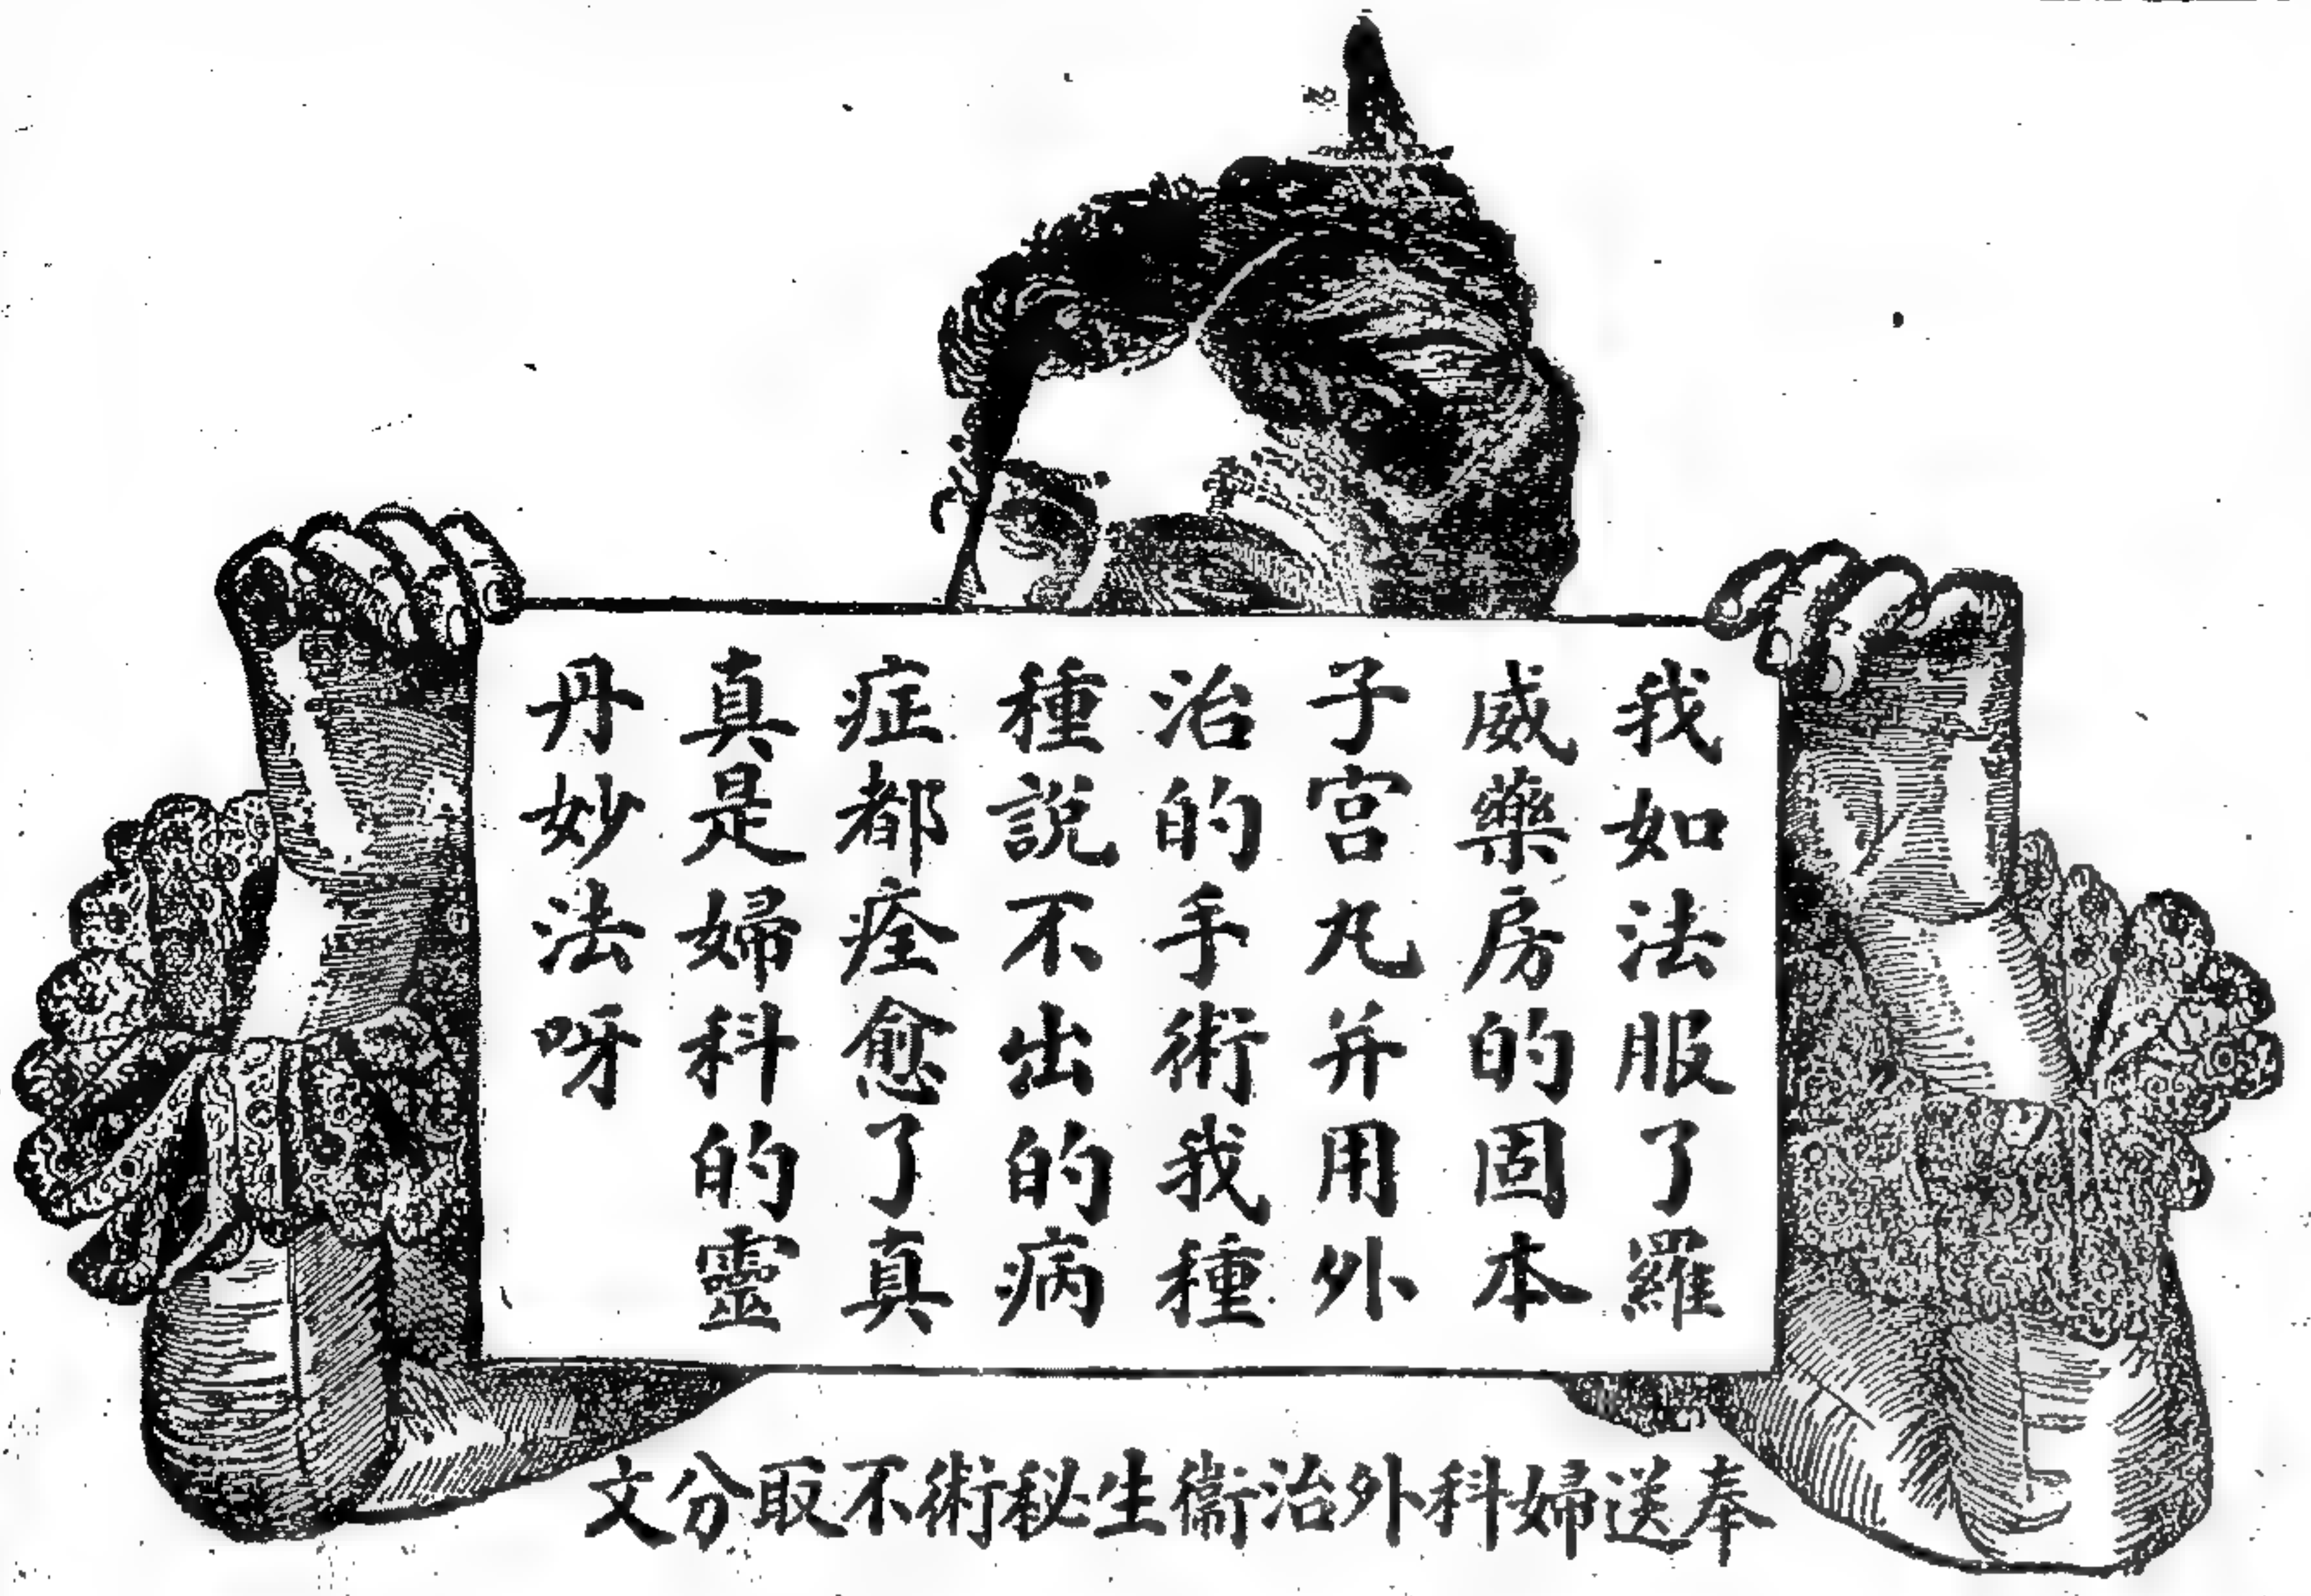 我如法服了羅
威藥房的固本
子宮丸并用外
治的手術我種
種說不出的病
症都痊愈了真
真是婦科的靈
丹妙法呀
奉送婦科外治衞生秘術不取分文